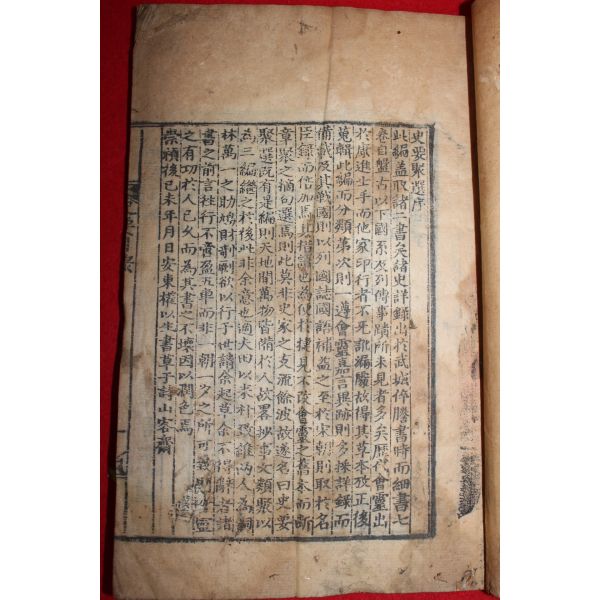 史要聚選序
此編盖取諸二書矣諸史詳錄出於武塘停勝書時而細書七
卷自盤古以下國系及列傳事蹟所未見者多矣歷代會靈出
於康進士手而他家印行者不死訛漏贋故得其草本攷正後
蒐輯此編而分類第次則一遵會靈嘉言異跡則多採詳錄而
備載及其戰國則以列國誌國語補益之至於宋朝則取於名
臣錄而倍加焉其措語也為便於捷見不改會靈之舊亦而斷
章聚之摘句選焉則此莫非史家之支流餘波故遂名曰史要
聚選旣有是編則天地間萬物皆備於人故畧抄事文類聚以
為三編継之於後此非余意也適夫田以米朴致維兩人為詞
林萬一之助鳩財剞劂欲以行于世請余起草余不得辭諸
書之前言往行不啻盈五車而非一朝一夕之所可
之有切於人已久而為其書之不壞因以潤色焉
崇禎後己未年月日安東權以生書草于詩山客齋